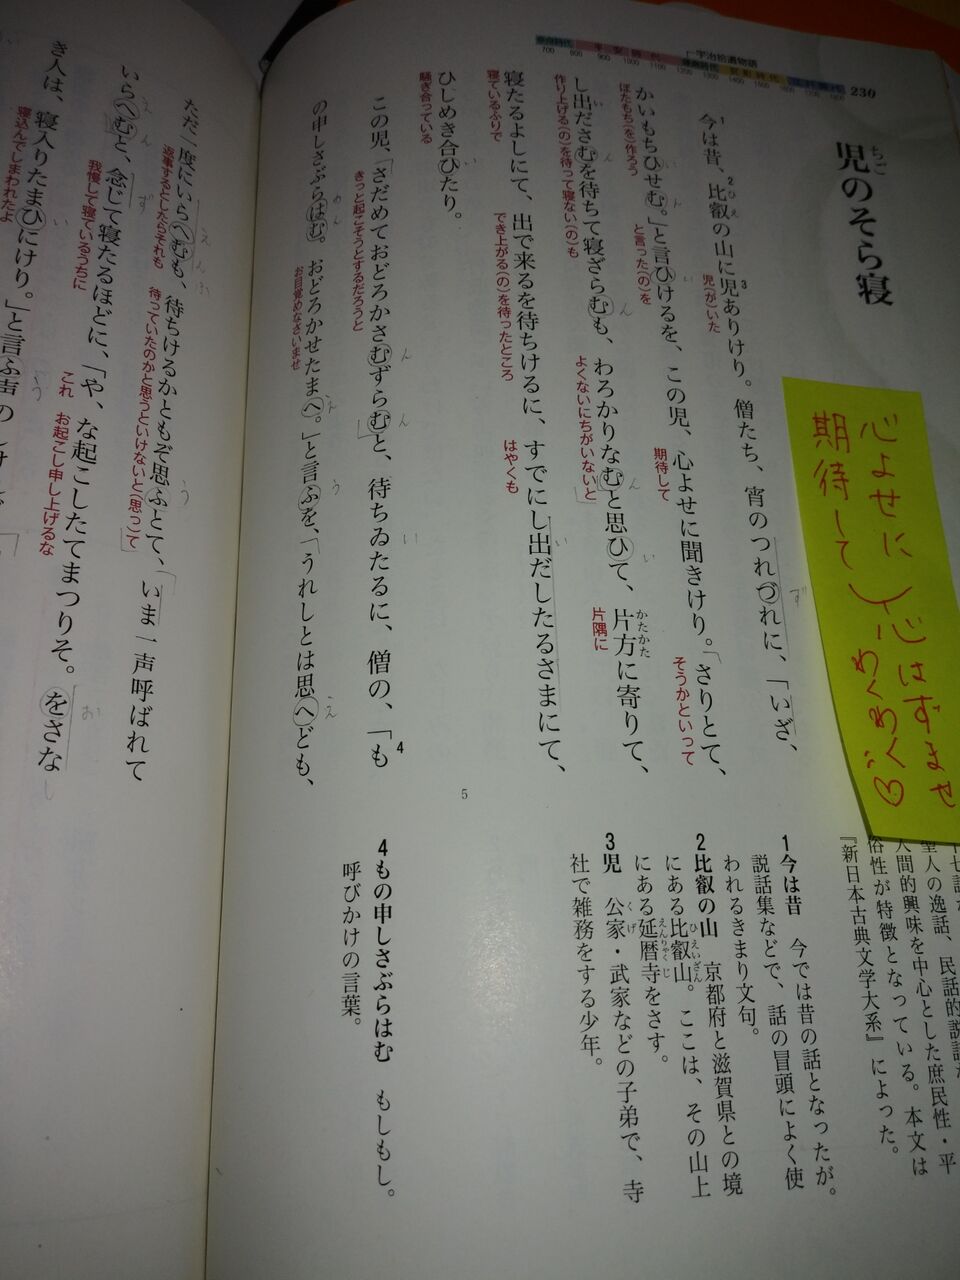 230
宇治拾遺物語
奈良時代
平安時代
鎌倉時代
室町時代
江戸時代
700 800 900 1000 1100 1200 1300 1400 1500 1600 1700 1800
児のそら寝
ちご
心よせに
期待して
心はずませ
わくわく♡
今は1昔、比叡2の山に児3ありけり。僧たち、宵のつれづれに、「いざ、
ひえ
ず
児(が)いた
かいもちひせむ。」と言ひけるを、この児、心よせに聞きけり。「さりとて、
い ん い
ぼたもち(を)作ろう と言った(の)を 期待して そうかといって
し出ださむを待ちて寝ざらむも、わろかりなむと思ひて、片方に寄りて、
い ん ん ん い かたかた
作り上げる(の)を待って寝ない(の)も よくないにちがいないと 片隅に
寝たるよしにて、出で来るを待ちけるに、すでにし出だしたるさまにて、
い
寝ているふりで でき上がる(の)を待ったところ はやくも
ひしめき合ひたり。
い
騒ぎ合っている
この児、「さだめておどろかさむずらむ」と、待ちゐたるに、僧の、「も4
ん ん い
きっと起こそうとするだろうと
の申しさぶらはむ。おどろかせたまへ。」と言ふを、「うれしとは思へども、
ん え う え
お目覚めなさいませ
5
ただ一度にいらへむも、待ちけるかともぞ思ふとて、「いま一声呼ばれて
え ん う
返事するとしたらそれも 待っていたのかと思うといけないと(思っ)て
いらへむと、念じて寝たるほどに、「や、な起こしたてまつりそ。をさな
ん ず お
我慢して寝ているうちに これ お起こし申し上げるな
き人は、寝入りたまひにけり。」と言ふ声の
い う
寝込んでしまわれたよ
聖人の逸話、民話的説話
人間的興味を中心とした庶民性・平
俗性が特徴となっている。本文は
『新日本古典文学大系』によった。
1今は昔 今では昔の話となったが。
説話集などで、話の冒頭によく使
われるきまり文句。
2比叡の山 京都府と滋賀県との境
にある比叡山。ここは、その山上
ひえいざん
にある延暦寺をさす。
えんりゃくじ
3児 公家・武家などの子弟で、寺
くげ
社で雑務をする少年。
4もの申しさぶらはむ もしもし。
呼びかけの言葉。